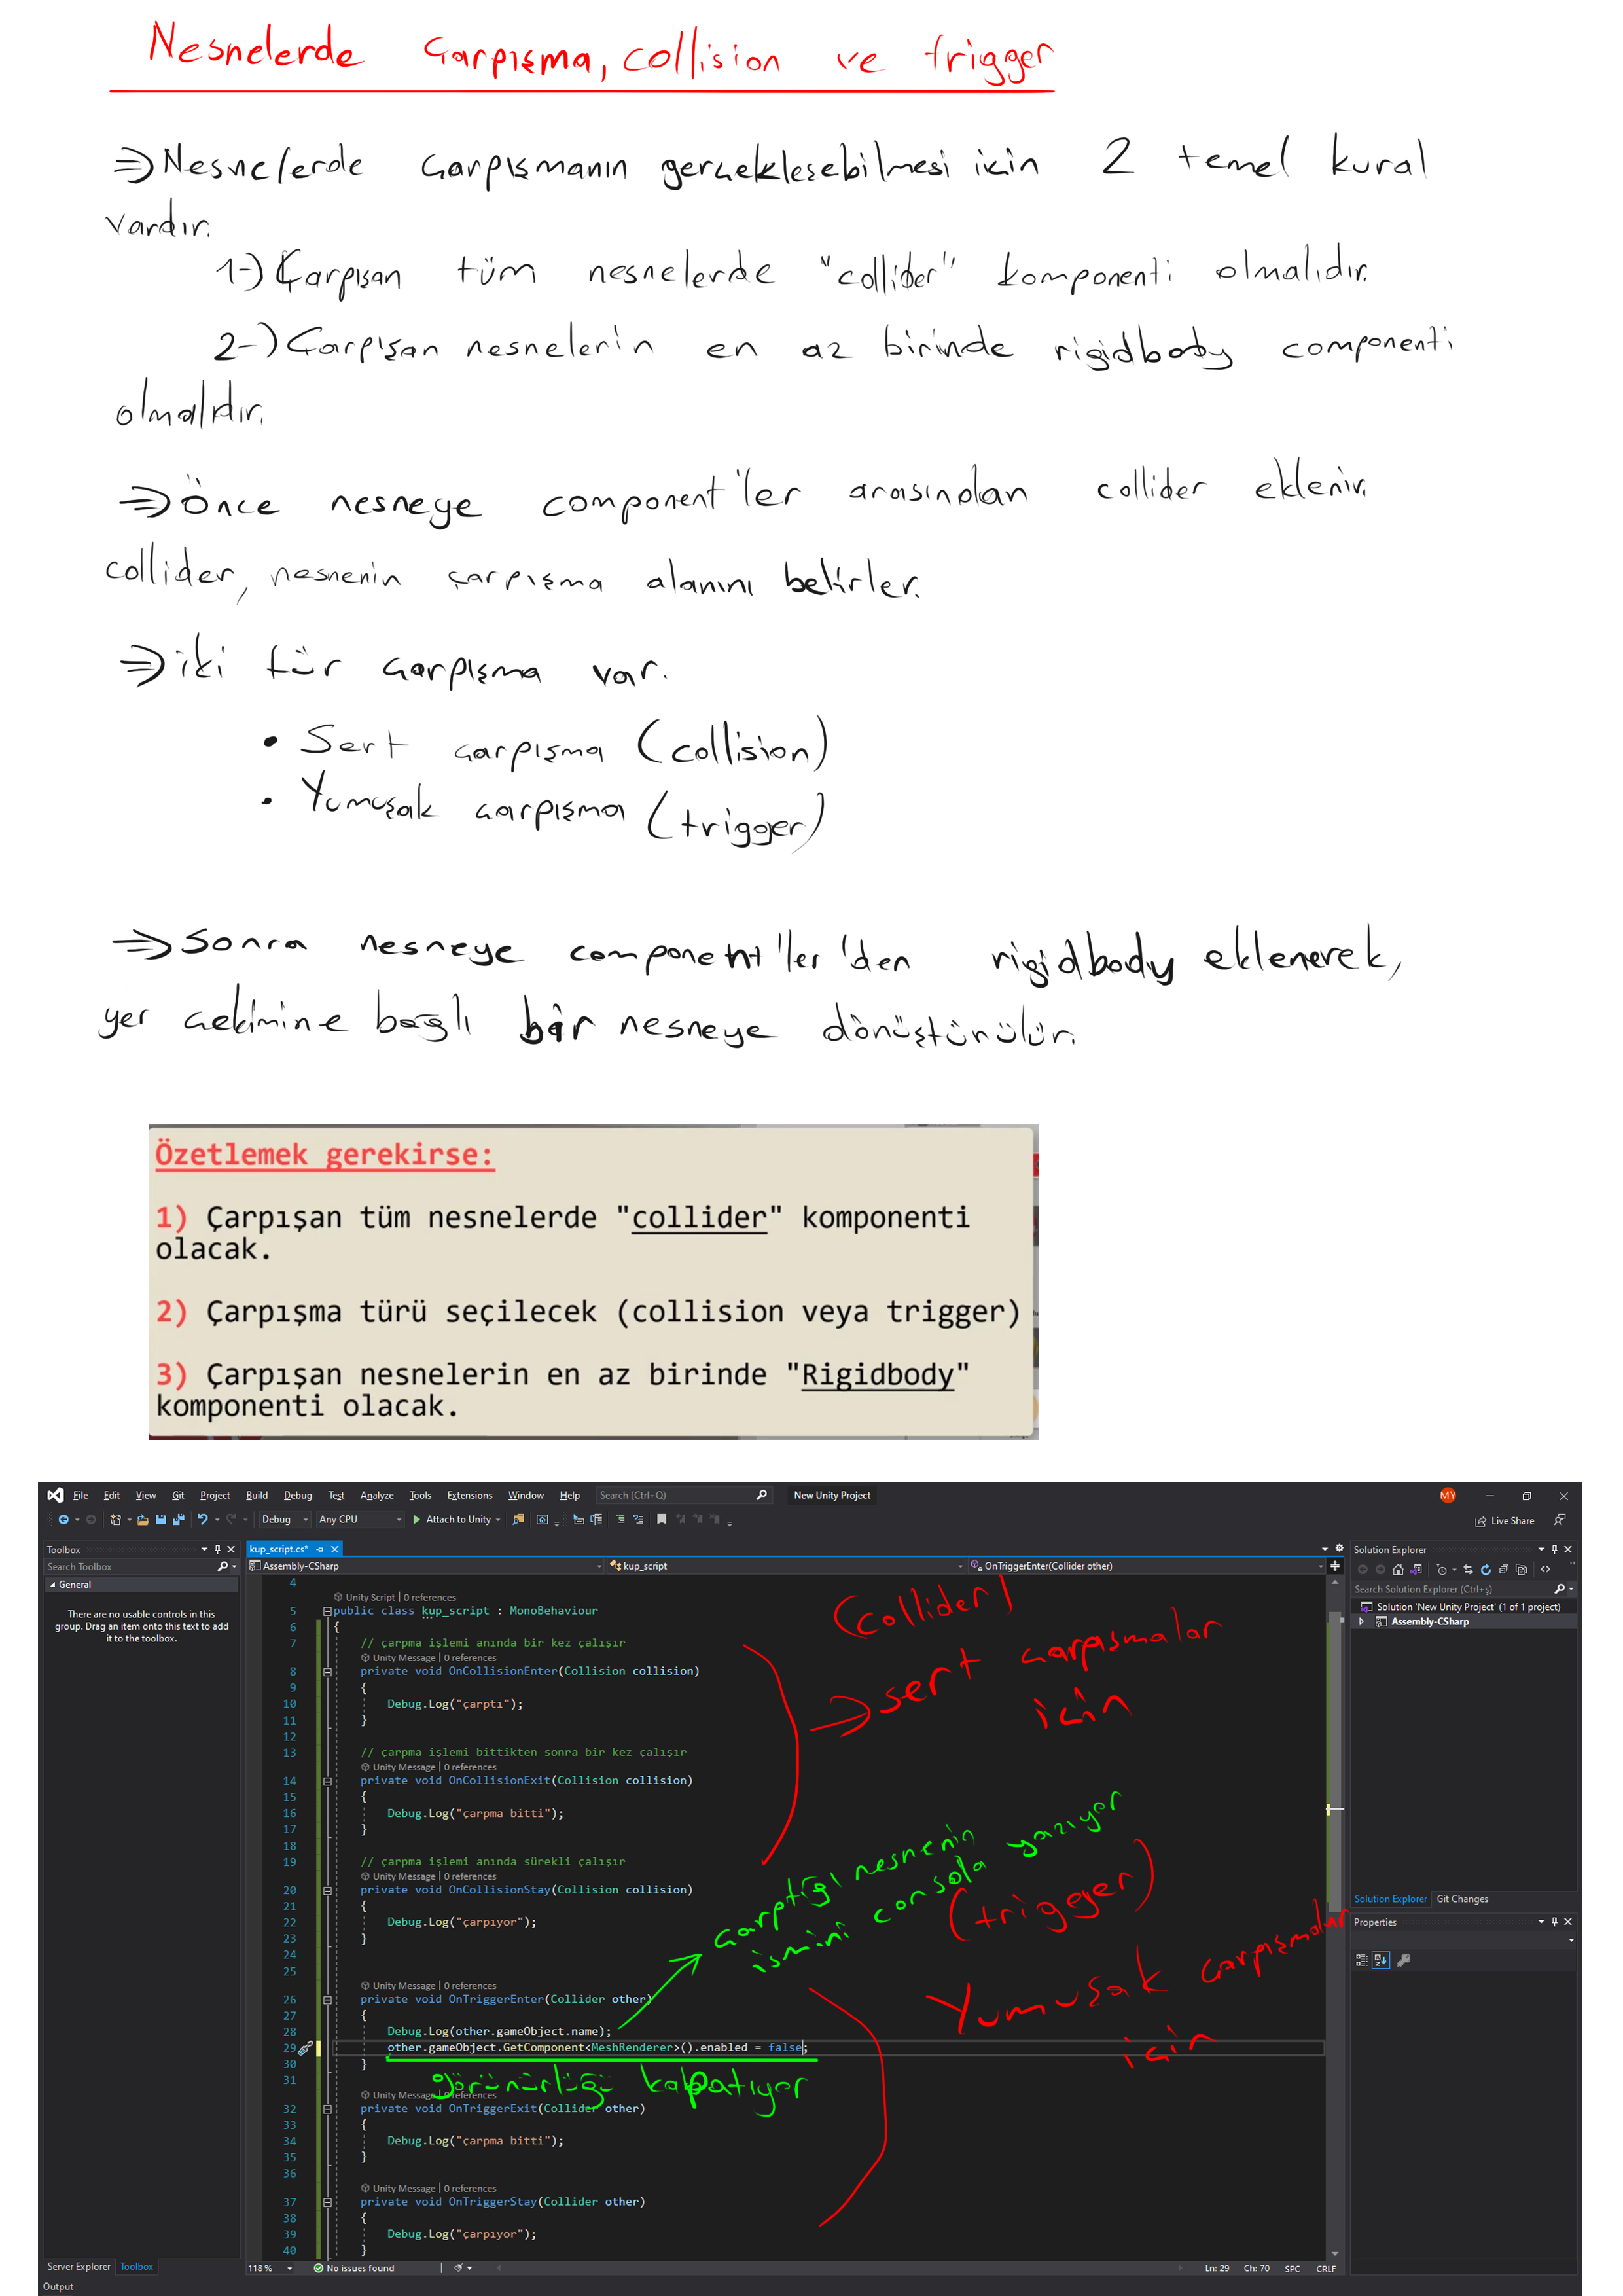 Nesnelerde Çarpışma, collision ve trigger
⇒ Nesnelerde çarpışmanın gerçekleşebilmesi için 2 temel kural
vardır.
1-) Çarpışan tüm nesnelerde "collider" komponenti olmalıdır.
2-) Çarpışan nesnelerin en az birinde rigidbody componenti
olmalıdır.
⇒ Önce nesneye component'ler arasından collider eklenir.
collider, nesnenin çarpışma alanını belirler.
⇒ iki tür çarpışma var.
• Sert çarpışma (collision)
• Yumuşak çarpışma (trigger)
⇒ Sonra nesneye component'ler'den rigidbody eklenerek,
yer çekimine bağlı bir nesneye dönüştürülür.
Özetlemek gerekirse:
1) Çarpışan tüm nesnelerde "collider" komponenti
olacak.
2) Çarpışma türü seçilecek (collision veya trigger)
3) Çarpışan nesnelerin en az birinde "Rigidbody"
komponenti olacak.
File Edit View Git Project Build Debug Test Analyze Tools Extensions Window Help Search (Ctrl+Q) New Unity Project MY
Debug Any CPU Attach to Unity Live Share
Toolbox
Search Toolbox
General
There are no usable controls in this
group. Drag an item onto this text to add
it to the toolbox.
Server Explorer Toolbox
Output
kup_script.cs*
Assembly-CSharp kup_script OnTriggerEnter(Collider other)
4
Unity Script | 0 references
5 public class kup_script : MonoBehaviour
6 {
7 // çarpma işlemi anında bir kez çalışır
Unity Message | 0 references
8 private void OnCollisionEnter(Collision collision)
9 {
10 Debug.Log("çarptı");
11 }
12
13 // çarpma işlemi bittikten sonra bir kez çalışır
Unity Message | 0 references
14 private void OnCollisionExit(Collision collision)
15 {
16 Debug.Log("çarpma bitti");
17 }
18
19 // çarpma işlemi anında sürekli çalışır
Unity Message | 0 references
20 private void OnCollisionStay(Collision collision)
21 {
22 Debug.Log("çarpıyor");
23 }
24
25
Unity Message | 0 references
26 private void OnTriggerEnter(Collider other)
27 {
28 Debug.Log(other.gameObject.name);
29 other.gameObject.GetComponent<MeshRenderer>().enabled = false;
30 }
31
Unity Message | 0 references
32 private void OnTriggerExit(Collider other)
33 {
34 Debug.Log("çarpma bitti");
35 }
36
Unity Message | 0 references
37 private void OnTriggerStay(Collider other)
38 {
39 Debug.Log("çarpıyor");
40 }
(collider)
⇒ sert çarpışmalar
için
çarptığı nesnenin
ismini consola yazıyor
(trigger)
Yumuşak çarpışmalar
için
görünürlüğü kapatıyor
118 % No issues found Ln: 29 Ch: 70 SPC CRLF
Solution Explorer
Search Solution Explorer (Ctrl+ş)
Solution 'New Unity Project' (1 of 1 project)
Assembly-CSharp
Solution Explorer Git Changes
Properties